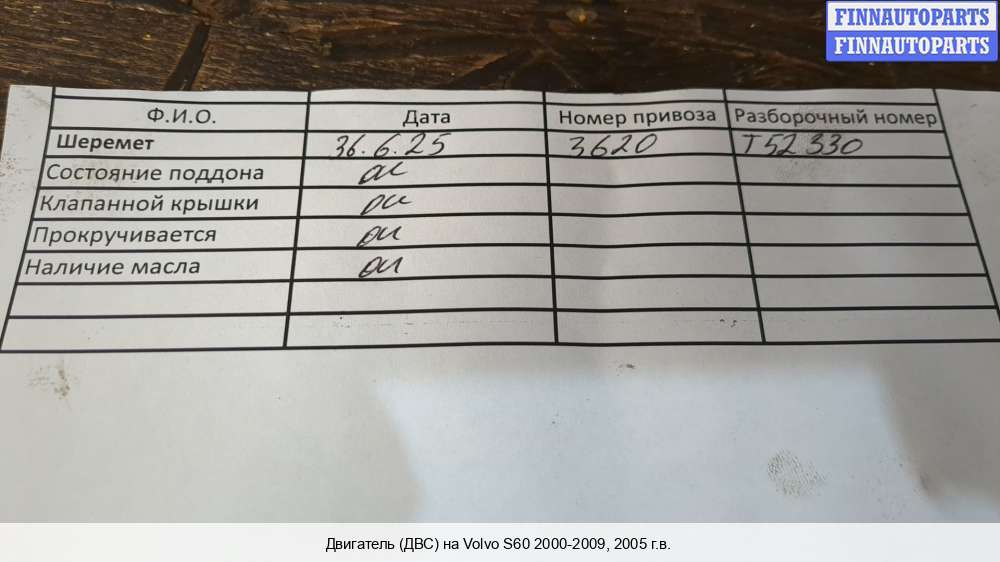 FINNAUTOPARTS
FINNAUTOPARTS
Ф.И.О. Дата Номер привоза Разборочный номер
Шеремет 36.6.25 3620 T52330
Состояние поддона ок
Клапанной крышки ок
Прокручивается ок
Наличие масла ок
Двигатель (ДВС) на Volvo S60 2000-2009, 2005 г.в.